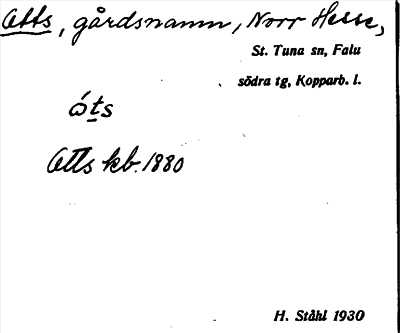 Otts, gårdsnamn, Norr Hesse,
St. Tuna sn, Falu
södra tg, Kopparb. l.
ó̀ts
Otts kb. 1880
H. Ståhl 1930